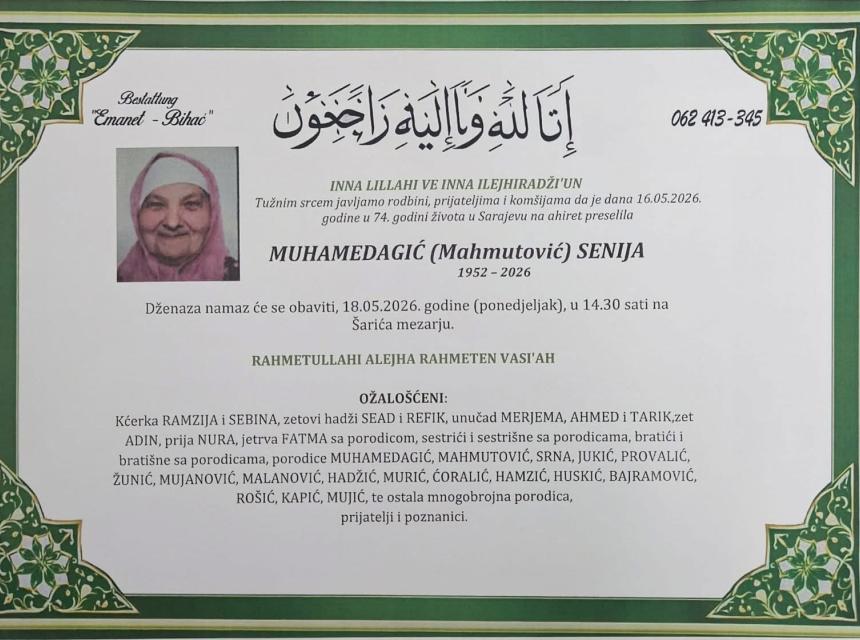 Bestattung
"Emanet - Bihać"
إنا لله وإنا إليه راجعون
062 413-345
INNA LILLAHI VE INNA ILEJHIRADŽI'UN
Tužnim srcem javljamo rodbini, prijateljima i komšijama da je dana 16.05.2026.
godine u 74. godini života u Sarajevu na ahiret preselila
MUHAMEDAGIĆ (Mahmutović) SENIJA
1952 – 2026
Dženaza namaz će se obaviti, 18.05.2026. godine (ponedjeljak), u 14.30 sati na
Šarića mezarju.
RAHMETULLAHI ALEJHA RAHMETEN VASI'AH
OŽALOŠĆENI:
Kćerka RAMZIJA i SEBINA, zetovi hadži SEAD i REFIK, unučad MERJEMA, AHMED i TARIK,zet
ADIN, prija NURA, jetrva FATMA sa porodicom, sestrići i sestrišne sa porodicama, bratići i
bratišne sa porodicama, porodice MUHAMEDAGIĆ, MAHMUTOVIĆ, SRNA, JUKIĆ, PROVALIĆ,
ŽUNIĆ, MUJANOVIĆ, MALANOVIĆ, HADŽIĆ, MURIĆ, ĆORALIĆ, HAMZIĆ, HUSKIĆ, BAJRAMOVIĆ,
ROŠIĆ, KAPIĆ, MUJIĆ, te ostala mnogobrojna porodica,
prijatelji i poznanici.